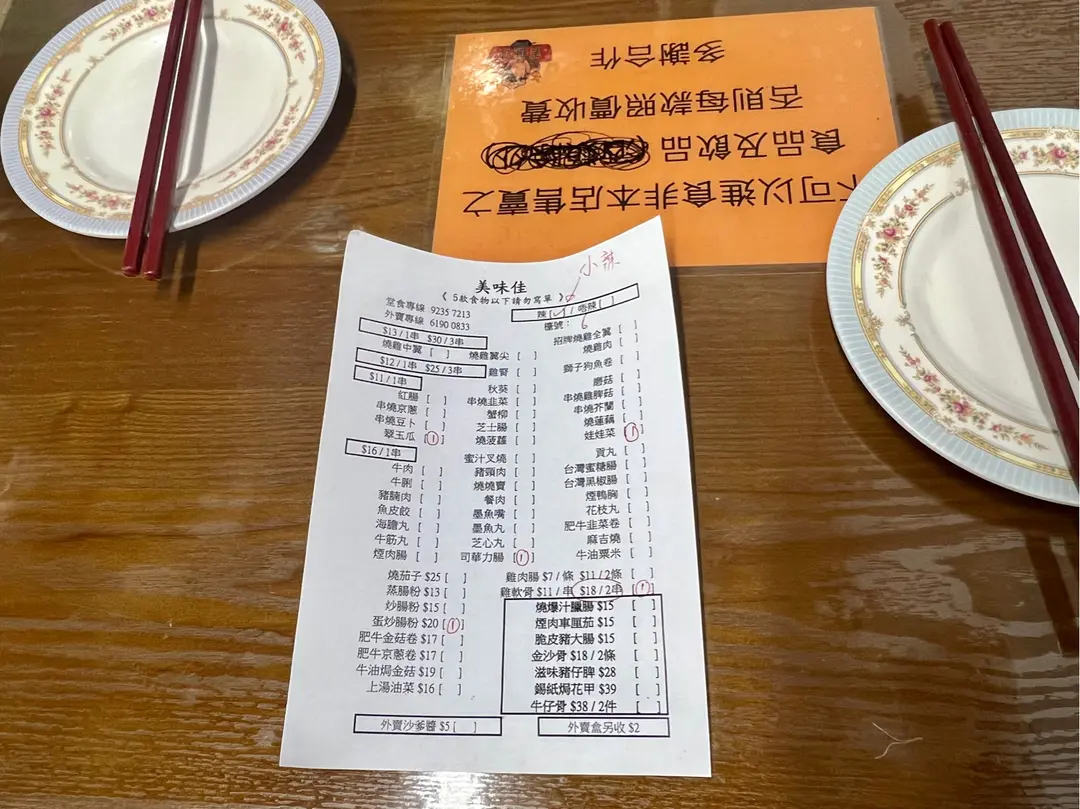 多謝合作
否則每款照價收費
食品及飲品
不可以進食非本店售賣之
美味佳
《 5款食物以下請勿寫單 》
小辣
堂食專線 9235 7213
辣[✓] / 唔辣[ ]
外賣專線 6190 0833
檯號: 6
$13 / 1串 $30 / 3串
招牌燒雞全翼 [ ]
燒雞中翼 [ ] 燒雞翼尖 [ ] 燒雞肉 [ ]
$12 / 1串 $25 / 3串
雞腎 [ ] 獅子狗魚卷 [ ]
$11 / 1串
秋葵 [ ] 蘑菇 [ ]
紅腸 [ ] 串燒韭菜 [ ] 串燒雞髀菇 [ ]
串燒京蔥 [ ] 蟹柳 [ ] 串燒芥蘭 [ ]
串燒豆卜 [ ] 芝士腸 [ ] 燒蓮藕 [ ]
翠玉瓜 [1] 燒菠蘿 [ ] 娃娃菜 [1]
$16 / 1串
蜜汁叉燒 [ ] 貢丸 [ ]
牛肉 [ ] 豬頸肉 [ ] 台灣蜜糖腸 [ ]
牛脷 [ ] 燒燒寶 [ ] 台灣黑椒腸 [ ]
豬腩肉 [ ] 餐肉 [ ] 煙鴨胸 [ ]
魚皮餃 [ ] 墨魚嘴 [ ] 花枝丸 [ ]
海膽丸 [ ] 墨魚丸 [ ] 肥牛韭菜卷 [ ]
牛筋丸 [ ] 芝心丸 [ ] 麻吉燒 [ ]
煙肉腸 [ ] 司華力腸 [1] 牛油粟米 [ ]
燒茄子 $25 [ ] 雞肉腸 $7 / 條 $11 / 2條 [ ]
蒸腸粉 $13 [ ] 雞軟骨 $11 / 串 $18 / 2串 [1]
炒腸粉 $15 [ ] 燒爆汁臘腸 $15 [ ]
蛋炒腸粉 $20 [1] 煙肉車厘茄 $15 [ ]
肥牛金菇卷 $17 [ ] 脆皮豬大腸 $15 [ ]
肥牛京蔥卷 $17 [ ] 金沙骨 $18 / 2條 [ ]
牛油焗金菇 $19 [ ] 滋味豬仔脾 $28 [ ]
上湯油菜 $16 [ ] 錫紙焗花甲 $39 [ ]
牛仔骨 $38 / 2件 [ ]
外賣沙爹醬 $5 [ ] 外賣盒另收 $2